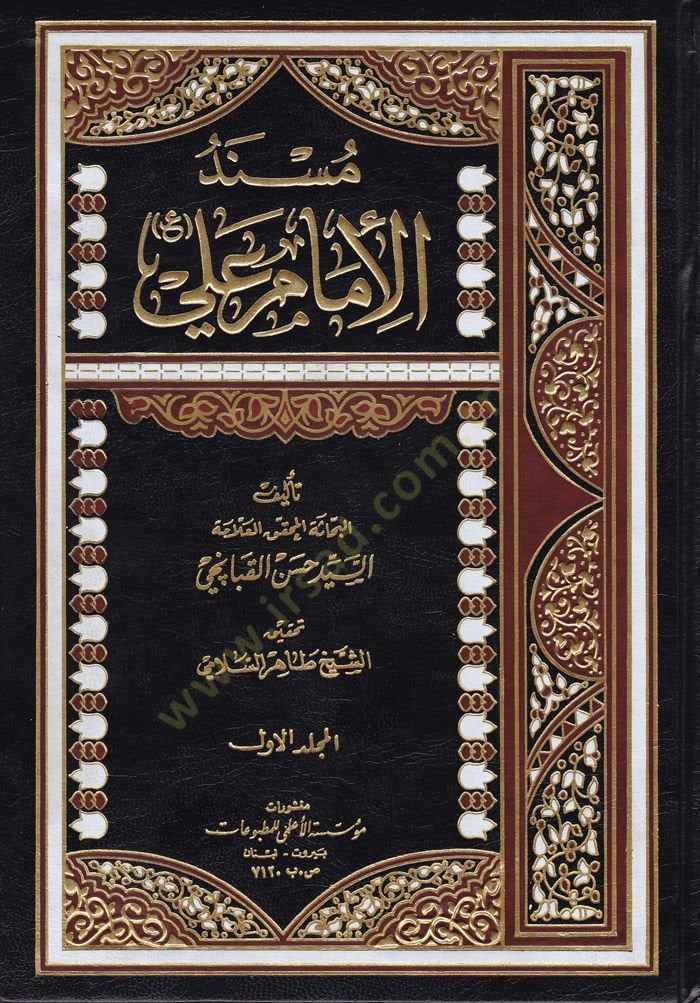 مُسْنَدُ
الإِمَامِ عَلِيّ (ع)
تأليف
البحاثة المحقق العلامة
السيّد حسن القبانجي
تحقيق
الشيخ طاهر السلامي
المجلد الاول
منشورات
مؤسسة الأعلمي للمطبوعات
بيروت - لبنان
ص.ب ٧١٢٠
www.irsad.com